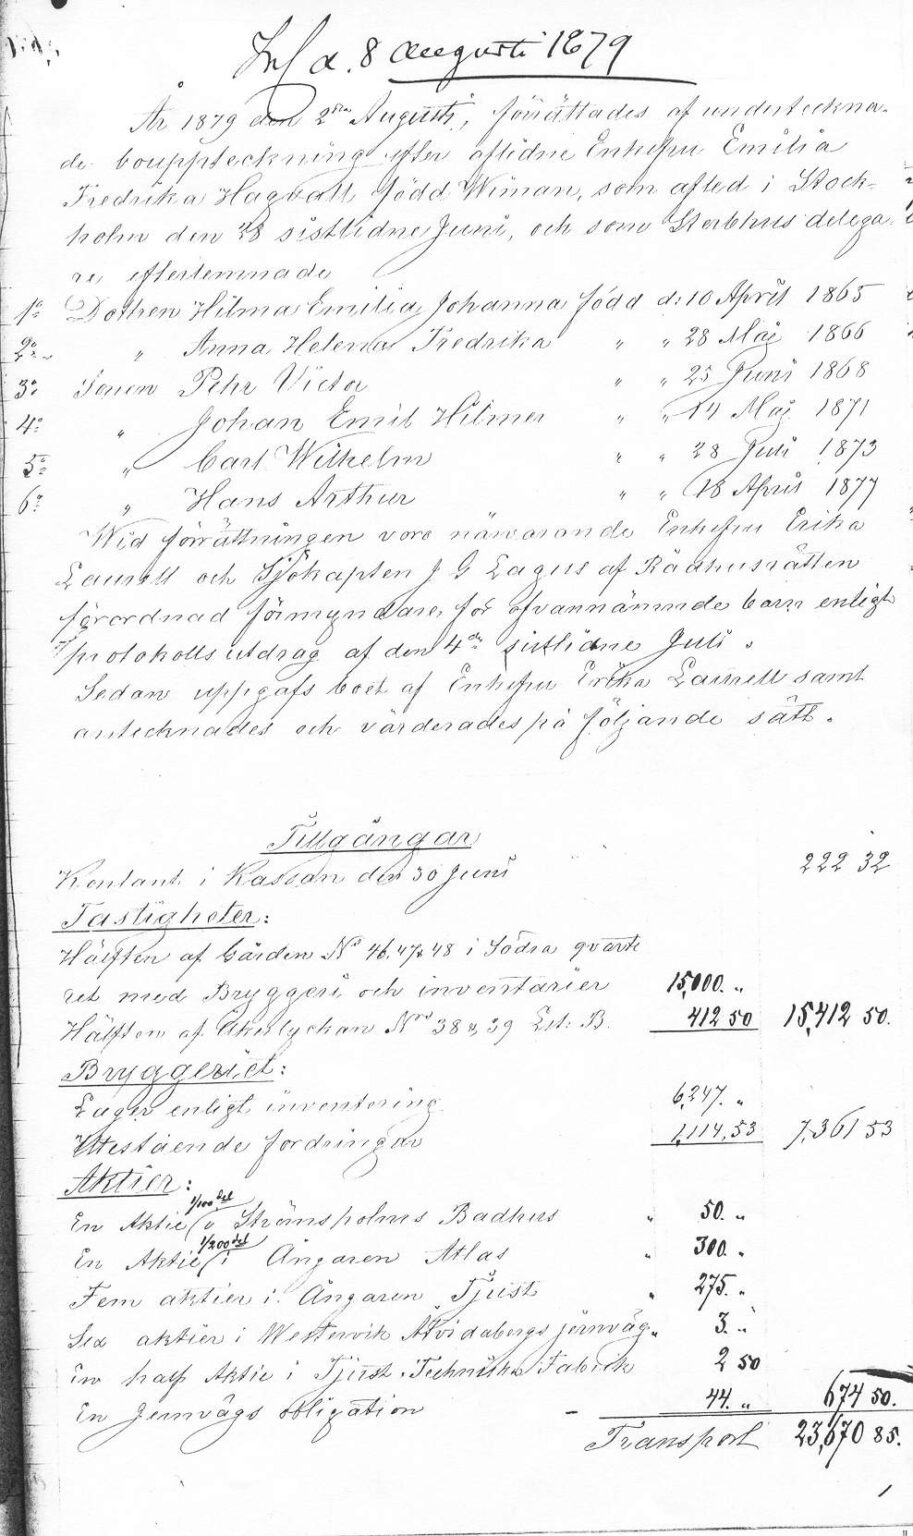 Inl d. 8 Augusti 1879
År 1879 den 2dra Augusti, förrättades af underteckna-
de bouppteckning efter aflidne Enkefru Emilia
Fredrika Hagvall född Wiman, som afled i Stock-
holm den 28 sistlidne Juni, och som Sterbhus delega
re efterlemnade
1o Dottren Hilma Emilia Johanna född d: 10 April 1865
2o " Anna Helena Fredrika " " 28 Maj 1866
3o Sonen Pehr Victor " " 25 Juni 1868
4o " Johan Emil Hilmer " " 14 Maj 1871
5o " Carl Wilhelm " " 28 Juli 1873
6o " Hans Arthur " " 18 April 1877
Wid förrättningen voro närvarande Enkefru Erika
Laurell och Sjökapten J G Lagus af Rådhusrätten
förordnad förmyndare för ofvannämnde barn enligt
protokolls utdrag af den 4de sistlidne Juli.
Sedan uppgafs boet af Enkefru Erika Laurell samt
antecknades och värderades på följande sätt.
Tillgångar
Kontant i Kassan den 30 Juni 222 32
Fastigheter:
Hälften af Gården No 46, 47 & 48 i Södra qvarte
ret med Bryggeri och inventarier 15,000. "
Hälften af Åkerlyckan Nris 38 & 39 Lit: B. 412 50 15,412 50.
Bryggeriet:
Lager enligt inventering 6,247. "
Utestående fordringar 1,114,53 7,361 53
Aktier:
En Aktie (1/100 del i Strömsholms Badhus " 50. "
En Aktie (1/200 del i Ångaren Atlas " 300. "
Fem aktier i Ångaren Tjust " 275. "
Sex aktier i Westervik Åtvidabergs jernväg " 3. "
En half Aktie i Tjust Tekniska Fabrik 2 50
En Jernvägs obligation - 44. " 674 50.
Transport 23,670 85.